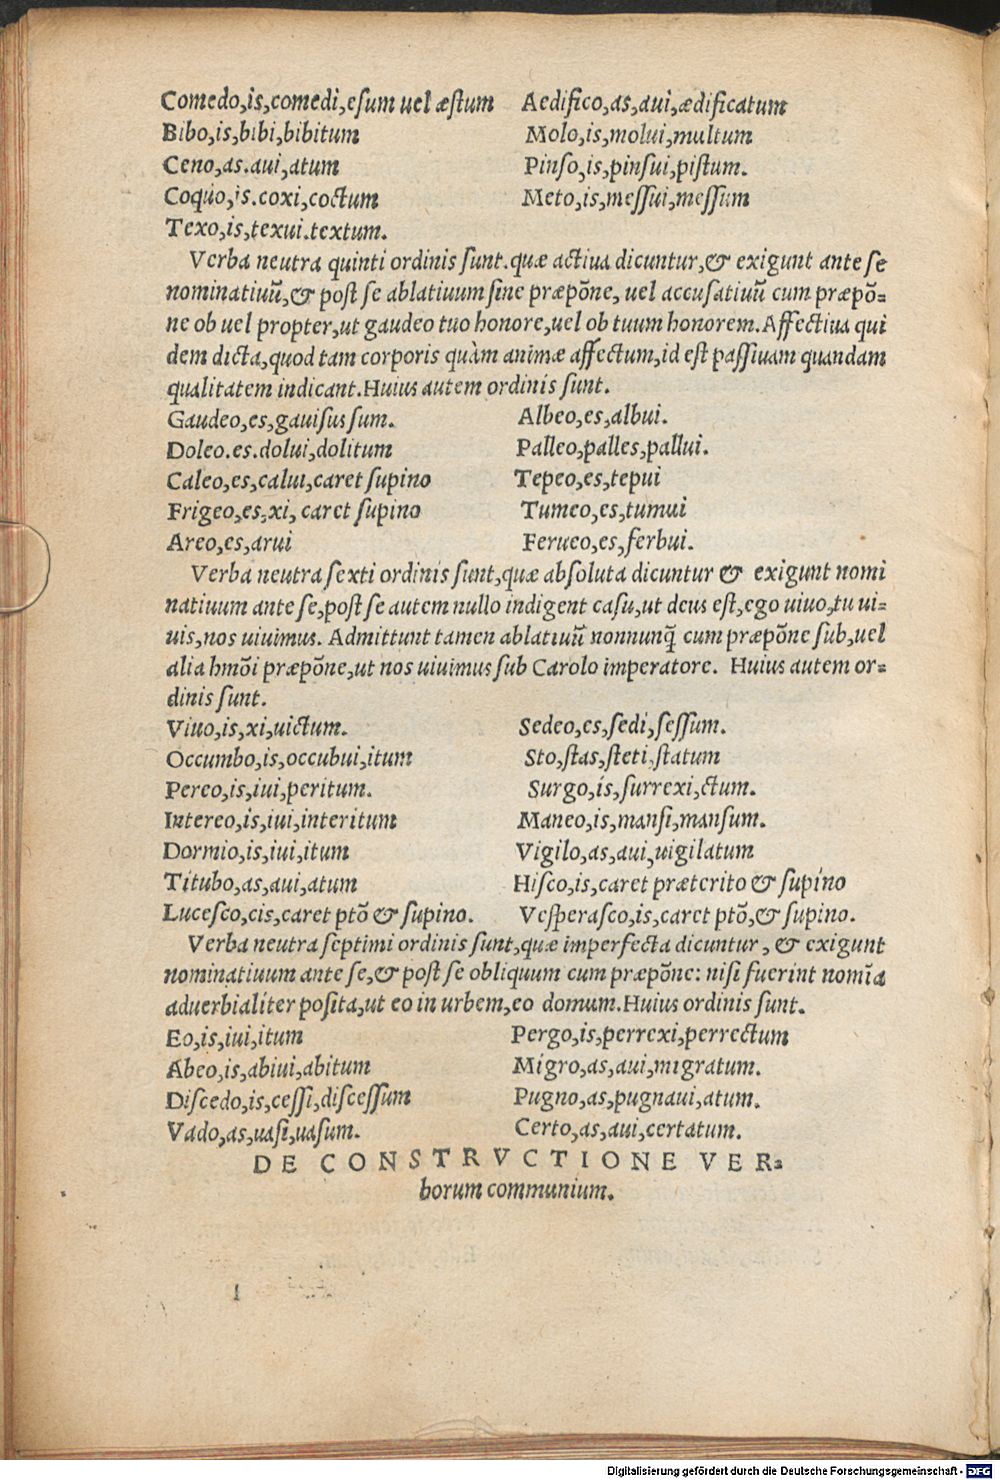 Comedo,is,comedi,esum uel æstum Aedifico,as,aui,ædificatum
Bibo,is,bibi,bibitum Molo,is,molui,multum
Ceno,as.aui,atum Pinso,is,pinsui,pistum.
Coquo,is.coxi,coctum Meto,is,messui,messum
Texo,is,texui.textum.
Verba neutra quinti ordinis sunt.quæ actiua dicuntur,& exigunt ante se
nominatiuū,& post se ablatiuum sine præpōne, uel accusatiuū cum præpō=
ne ob uel propter,ut gaudeo tuo honore,uel ob tuum honorem.Affectiua qui
dem dicta,quod tam corporis quàm animæ affectum,id est passiuam quandam
qualitatem indicant.Huius autem ordinis sunt.
Gaudeo,es,gauisus sum. Albeo,es,albui.
Doleo.es.dolui,dolitum Palleo,palles,pallui.
Caleo,es,calui,caret supino Tepeo,es,tepui
Frigeo,es,xi, caret supino Tumeo,es,tumui
Areo,es,arui Ferueo,es,ferbui.
Verba neutra sexti ordinis sunt,quæ absoluta dicuntur & exigunt nomi
natiuum ante se,post se autem nullo indigent casu,ut deus est,ego uiuo,tu ui=
uis,nos uiuimus. Admittunt tamen ablatiuū nonnunq̄ cum præpōne sub,uel
alia hmōi præpōne,ut nos uiuimus sub Carolo imperatore. Huius autem or=
dinis sunt.
Viuo,is,xi,uictum. Sedeo,es,sedi,sessum.
Occumbo,is,occubui,itum Sto,stas,steti,statum
Pereo,is,iui,peritum. Surgo,is,surrexi,ctum.
Intereo,is,iui,interitum Maneo,is,mansi,mansum.
Dormio,is,iui,itum Vigilo,as,aui,uigilatum
Titubo,as,aui,atum Hisco,is,caret præterito & supino
Lucesco,cis,caret ptō & supino. Vesperasco,is,caret ptō,& supino.
Verba neutra septimi ordinis sunt,quæ imperfecta dicuntur, & exigunt
nominatiuum ante se,& post se obliquum cum præpōne: nisi fuerint nomia
aduerbialiter posita,ut eo in urbem,eo domum.Huius ordinis sunt.
Eo,is,iui,itum Pergo,is,perrexi,perrectum
Abeo,is,abiui,abitum Migro,as,aui,migratum.
Discedo,is,cessi,discessum Pugno,as,pugnaui,atum.
Vado,as,uasi,uasum. Certo,as,aui,certatum.
DE CONSTRVCTIONE VER=
borum communium.
Digitalisierung gefördert durch die Deutsche Forschungsgemeinschaft - DFG